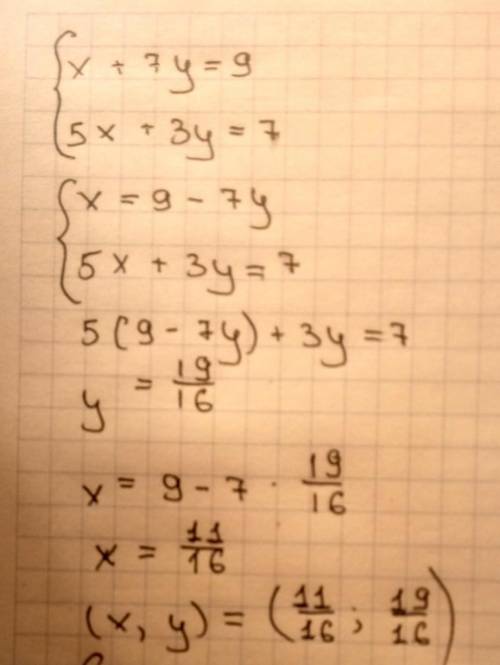 x + 7y = 9
5x + 3y = 7
x = 9 - 7y
5x + 3y = 7
5(9 - 7y) + 3y = 7
y = 19/16
x = 9 - 7 · 19/16
x = 11/16
(x, y) = (11/16 ; 19/16)